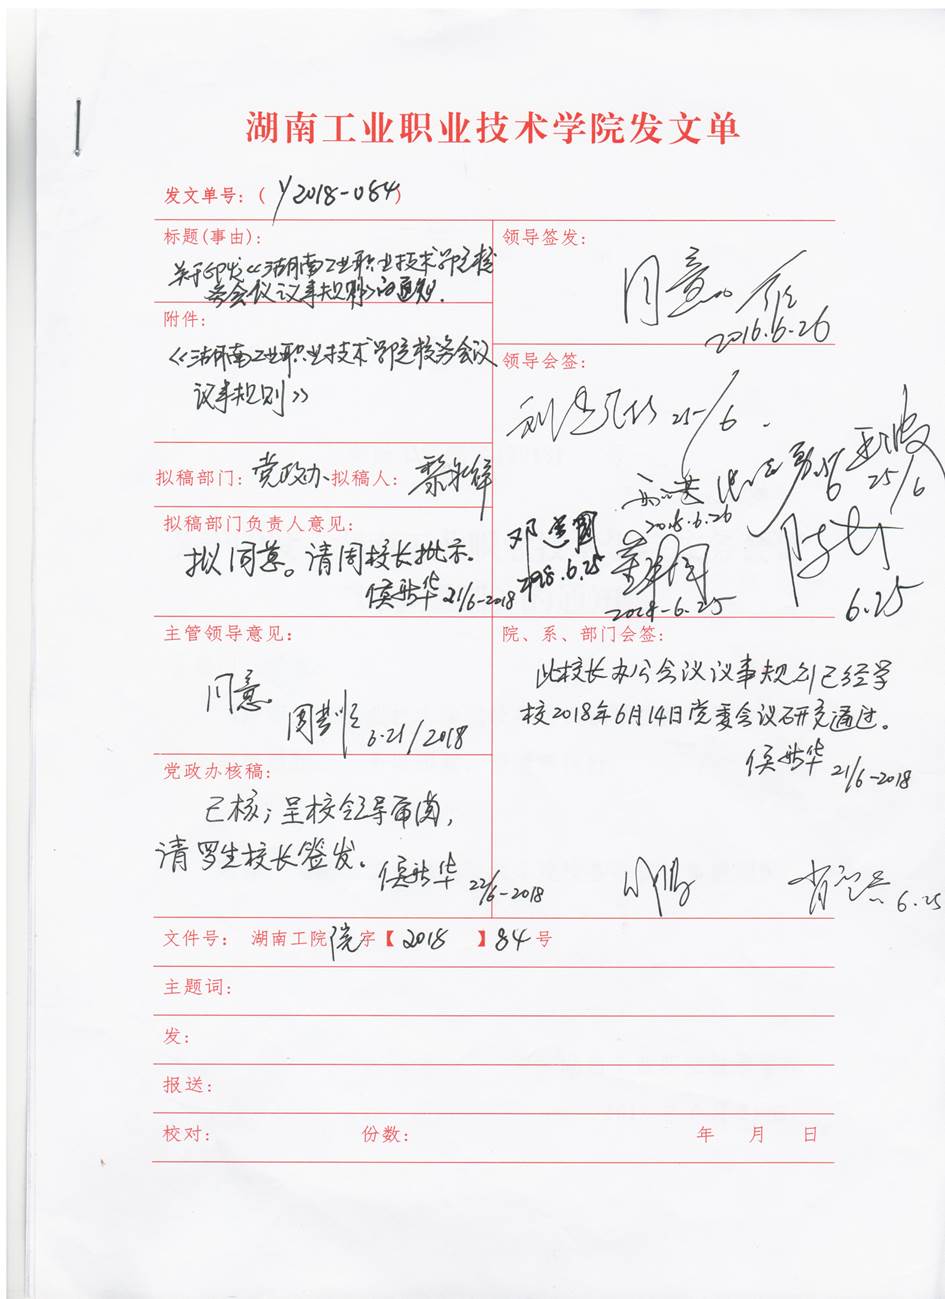 湖南工业职业技术学院发文单
发文单号：( y2018-084)
标题(事由)：
关于印发《湖南工业职业技术学院校
务会议议事规则》的通知.
附件：
《湖南工业职业技术学院校务会议
议事规则》
拟稿部门：党政办 拟稿人：
拟稿部门负责人意见：
拟同意。请周校长批示.
21/6-2018
主管领导意见：
同意。
6.21/2018
党政办核稿：
已核；呈校领导审阅，
请罗生校长签发。
22/6-2018
领导签发：
同意。
2016.6.26
领导会签：
25/6.
25/6
2018.6.26
邓
2018.6.25
2018-6.25
6.25
院、系、部门会签：
此校长办公会议议事规则已经学
校2018年6月14日党委会议研究通过。
21/6-2018
6.25
文件号： 湖南工院院字【2018 】84号
主题词：
发：
报送：
校对： 份数： 年 月 日